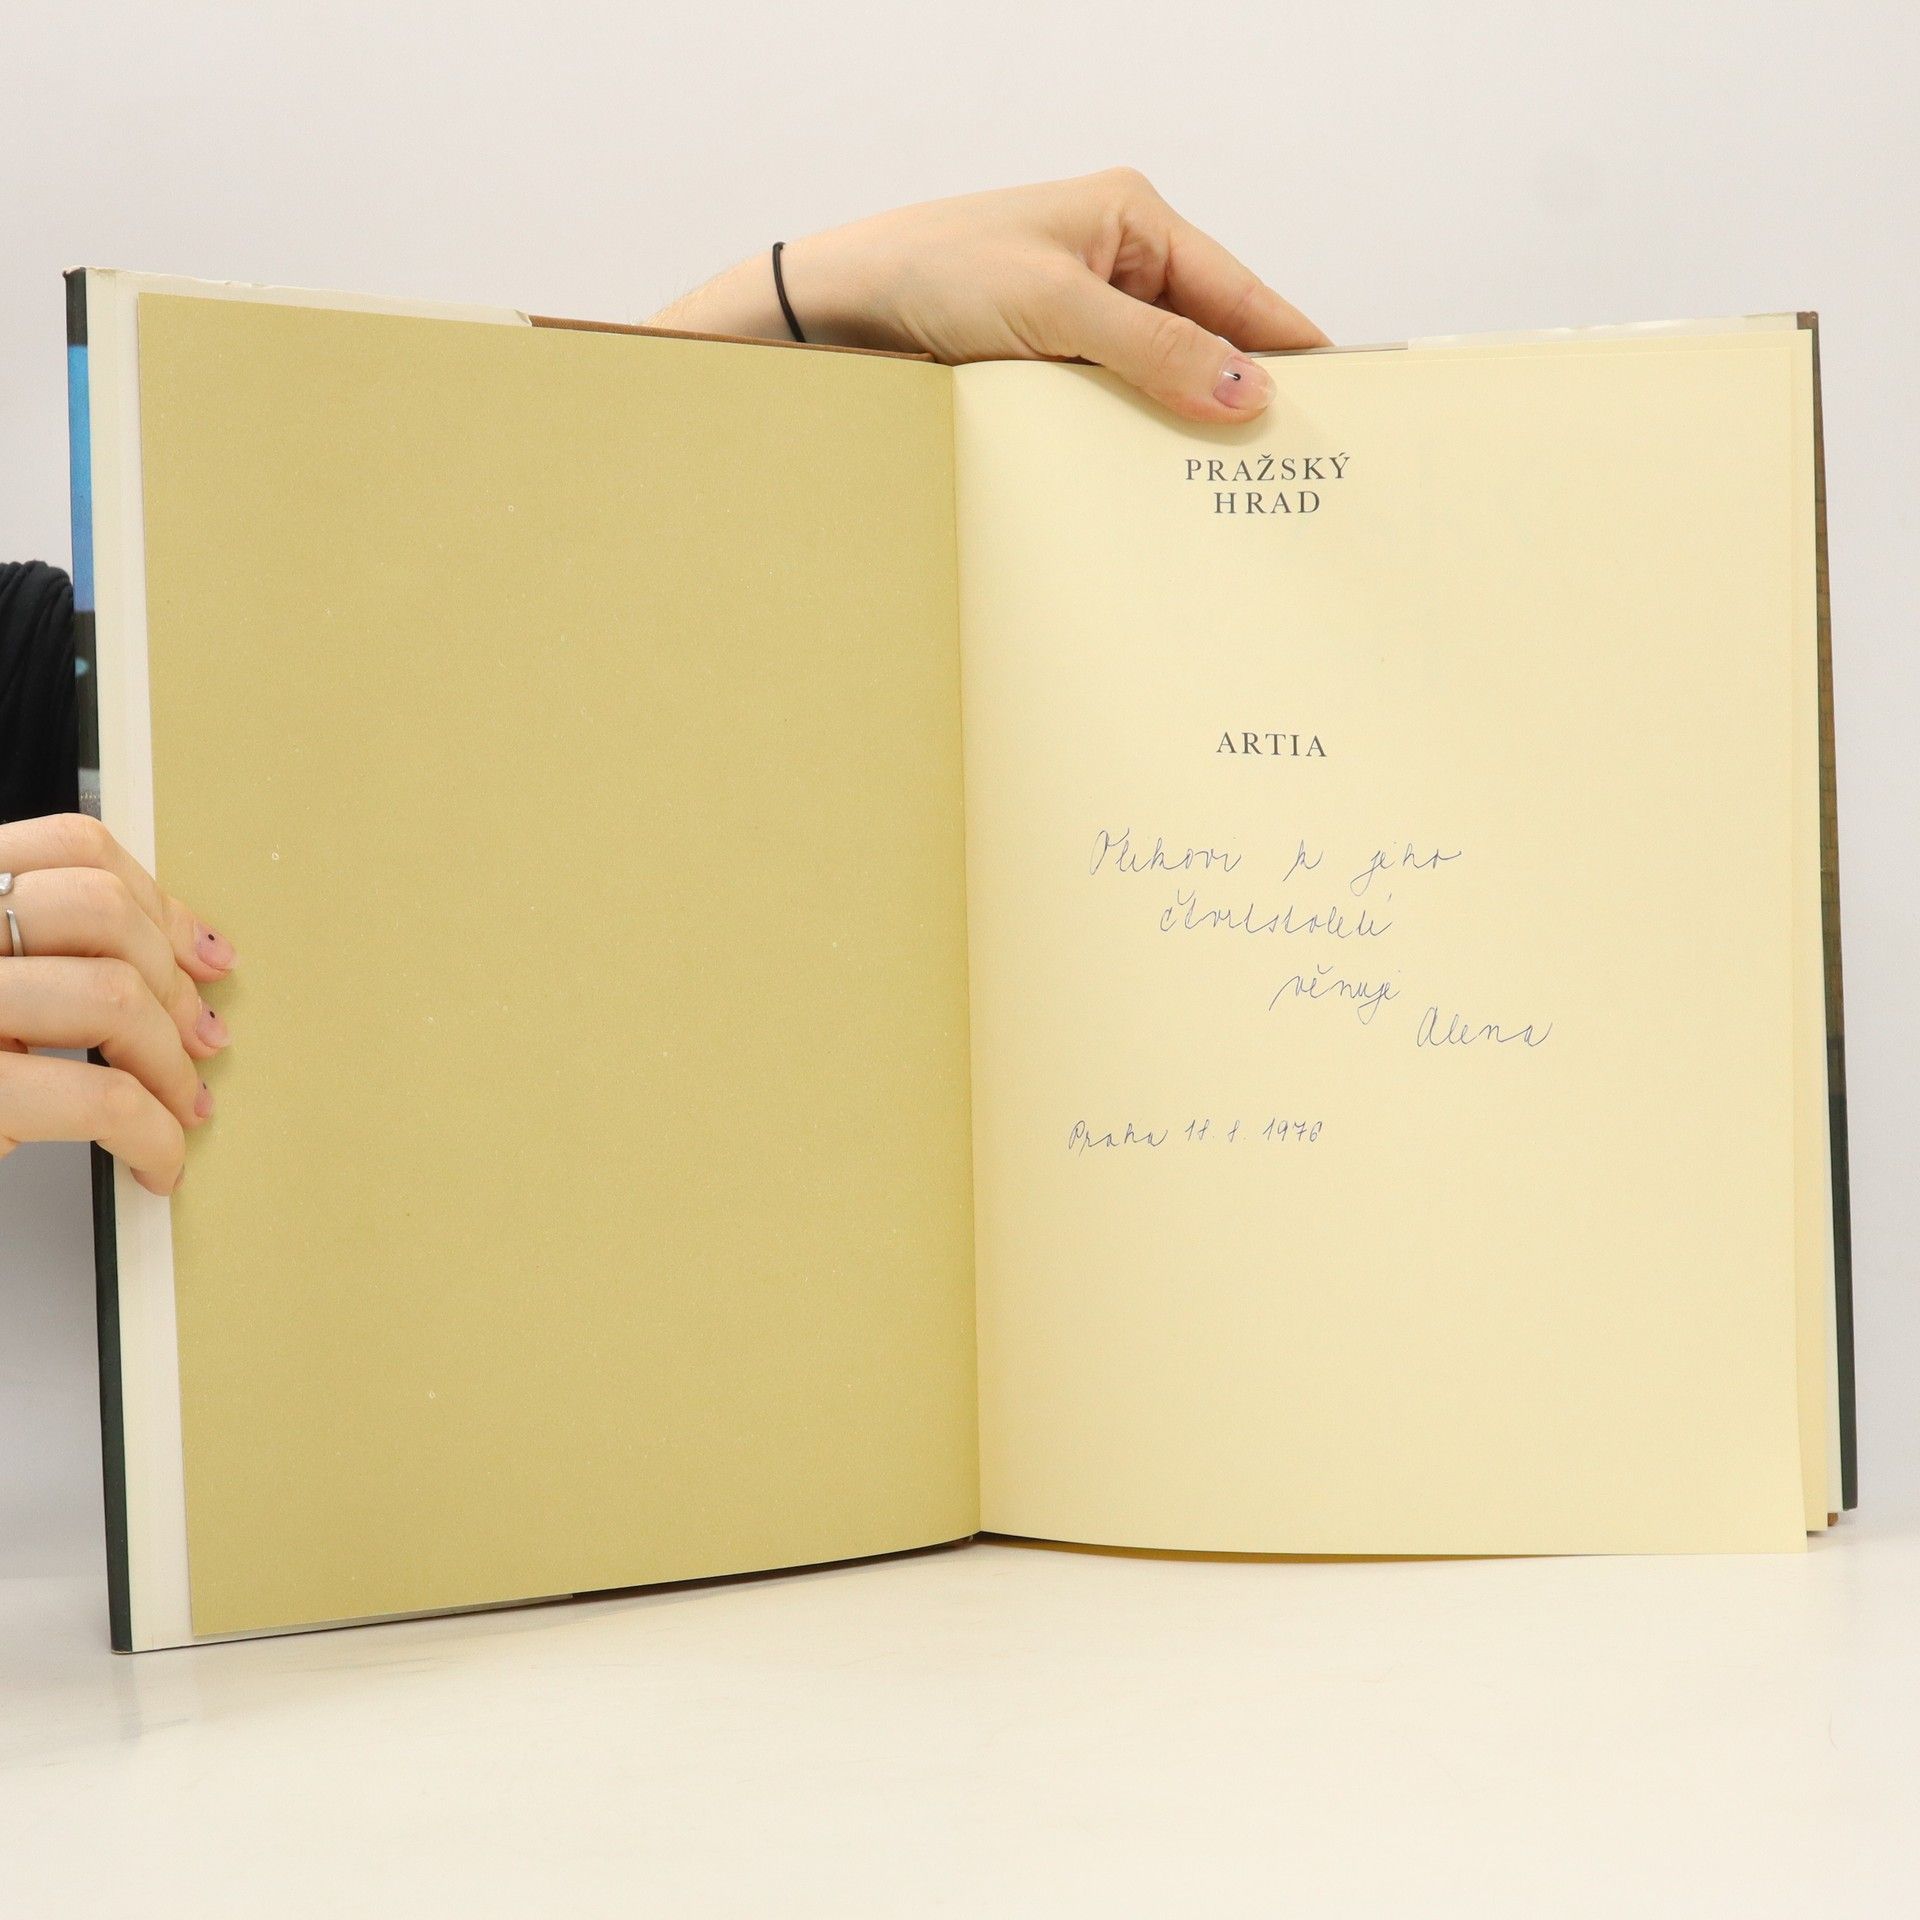 PRAŽSKÝ
HRAD
ARTIA
k jeho
čtvrtstoletí
věnuje
Alena
Praha 18. 8. 1976